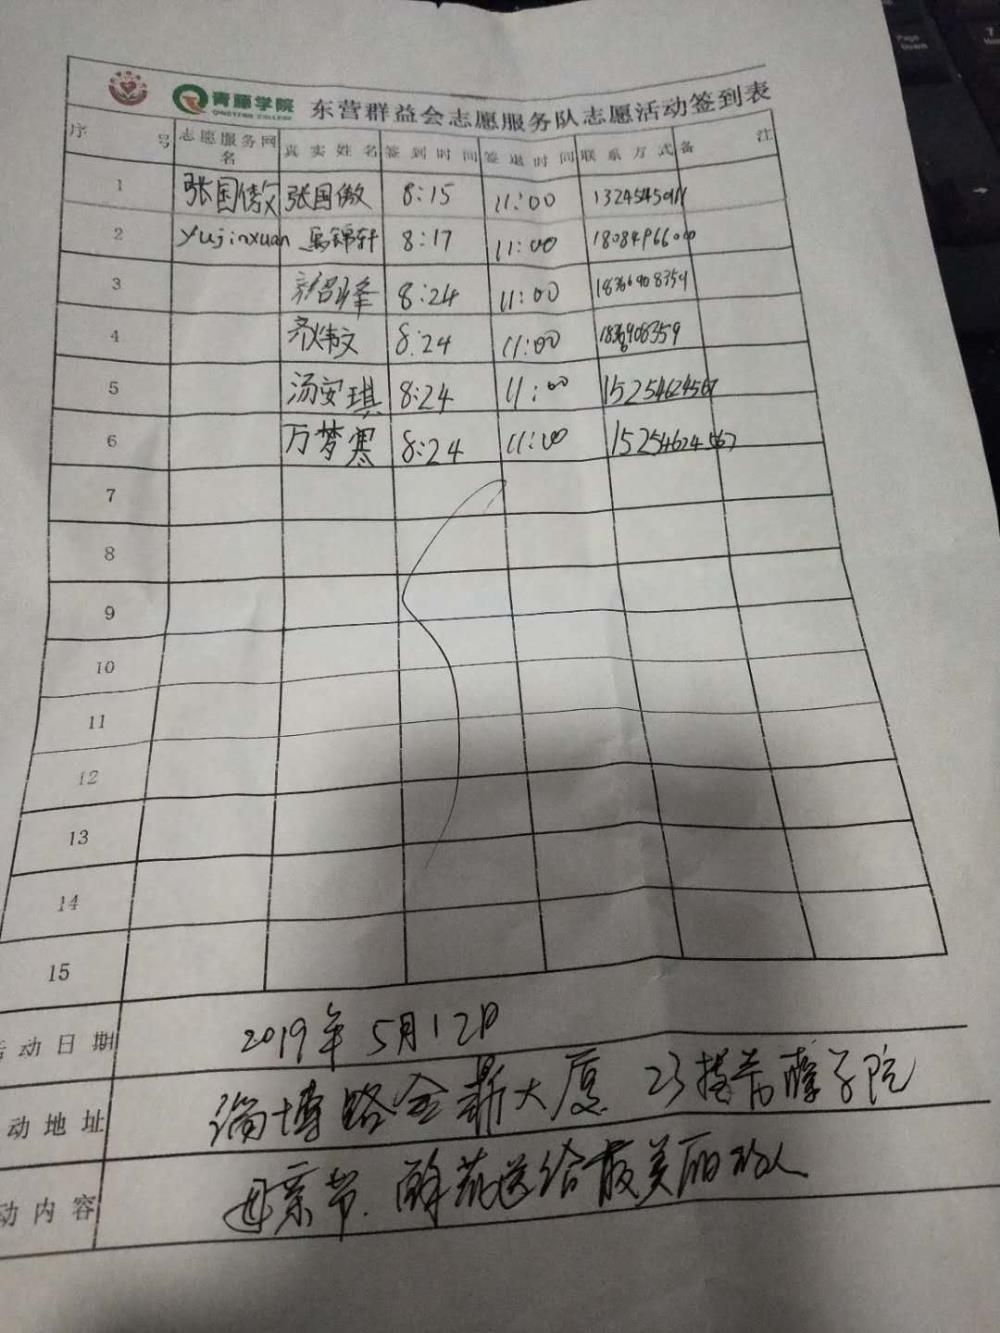 青藤学院 东营群益会志愿服务队志愿活动签到表
QINGTENG COLLEGE
序号 志愿服务网名 真实姓名 签到时间 签退时间 联系方式 备注
1 张国傲 张国傲 8:15 11:00
2 yujinxuan 8:17 11:00
3 8:24 11:00
4 8:24 11:00
5 汤安琪 8:24 11:00 15254624567
6 万梦寒 8:24 11:00 15254624567
7
8
9
10
11
12
13
14
15
动日期 2019年5月12日
动地址 淄博路金鼎大厦 23楼青藤学院
动内容 母亲节.鲜花送给最美丽的人
Page Down
7